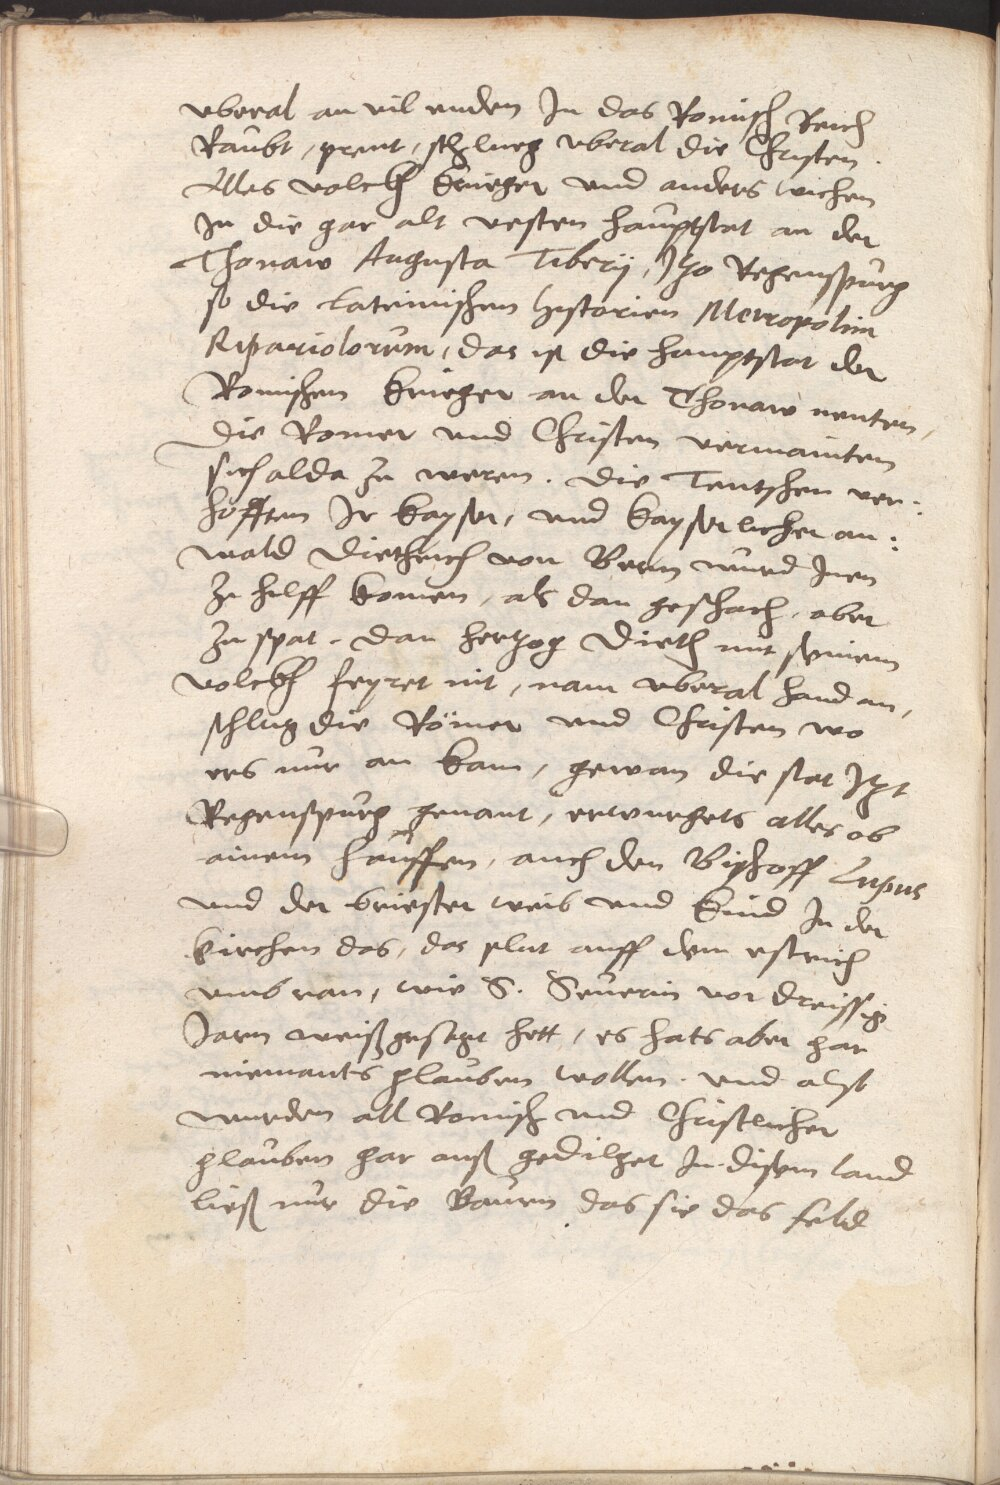 vberal an vil enden In das Romisch Reich
Raubt, prent, schlueg vberal die Christen.
Alles volckh krieger vnd anders wichen
In die gar alt vesten hauptstat an der
Thonaw Augusta Tiberij, Itzo Regenspurg
so die Lateinischen historien Metropolim
Ripariolorum, das ist die hauptstat der
Romischen krieger an der Thonaw nenten,
Die Romer vnd Christen vermainten
sich alda zu weren. Die Teutschen ver:
hofften Ir kayser, vnd kayserlicher an:
wald Diethrich von Bern wurd Inen
zu hilff komen, als dan geschach, aber
zu spat. dan hertzog Dieth mit seinem
volckh feyret nit, nam vberal hand an,
schlug die Römer vnd Christen wo
ers nur an kam, gewan die stat Itzt
Regenspurg genant, erwurgets alles ob
ainem hauffen, auch den Bischoff Lupus
vnd der briester weib vnd kind In der
kirchen das, das plut auff dem estrich
vmb ran, wie S. Seuerin vor dreissig
Jaren weißgesagt hett, es hats aber gar
niemants glauben wollen. vnd also
wurden all Romisch vnd Christlicher
glauben gar auß gedilget In disem land
ließ nur die Bauren das sie das feld